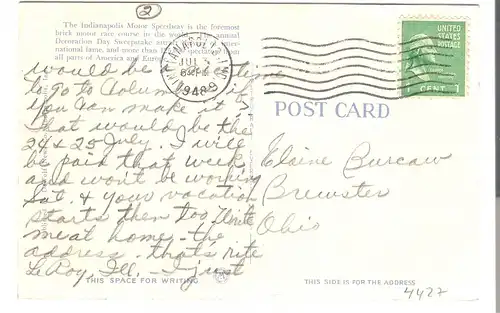 ②
The Indianapolis Motor Speedway is the foremost
brick motor race course in the world. The annual
Decoration Day Sweepstake
all parts of America and
would be time
to go to Columbus if
you can make it.
That would be the
24 & 25 July. I will
be paid that week
and won't be working
Sat. & your vacation
starts then too. Write
me at home - the
address - that's rite
LeRoy, Ill. - I just
THIS SPACE FOR WRITING
INDIANAPOLIS
JUL
PM
1948
UNITED
STATES
POSTAGE
1 CENT 1
POST CARD
Elaine Burcaw
Brewster
Ohio
THIS SIDE IS FOR THE ADDRESS
4427